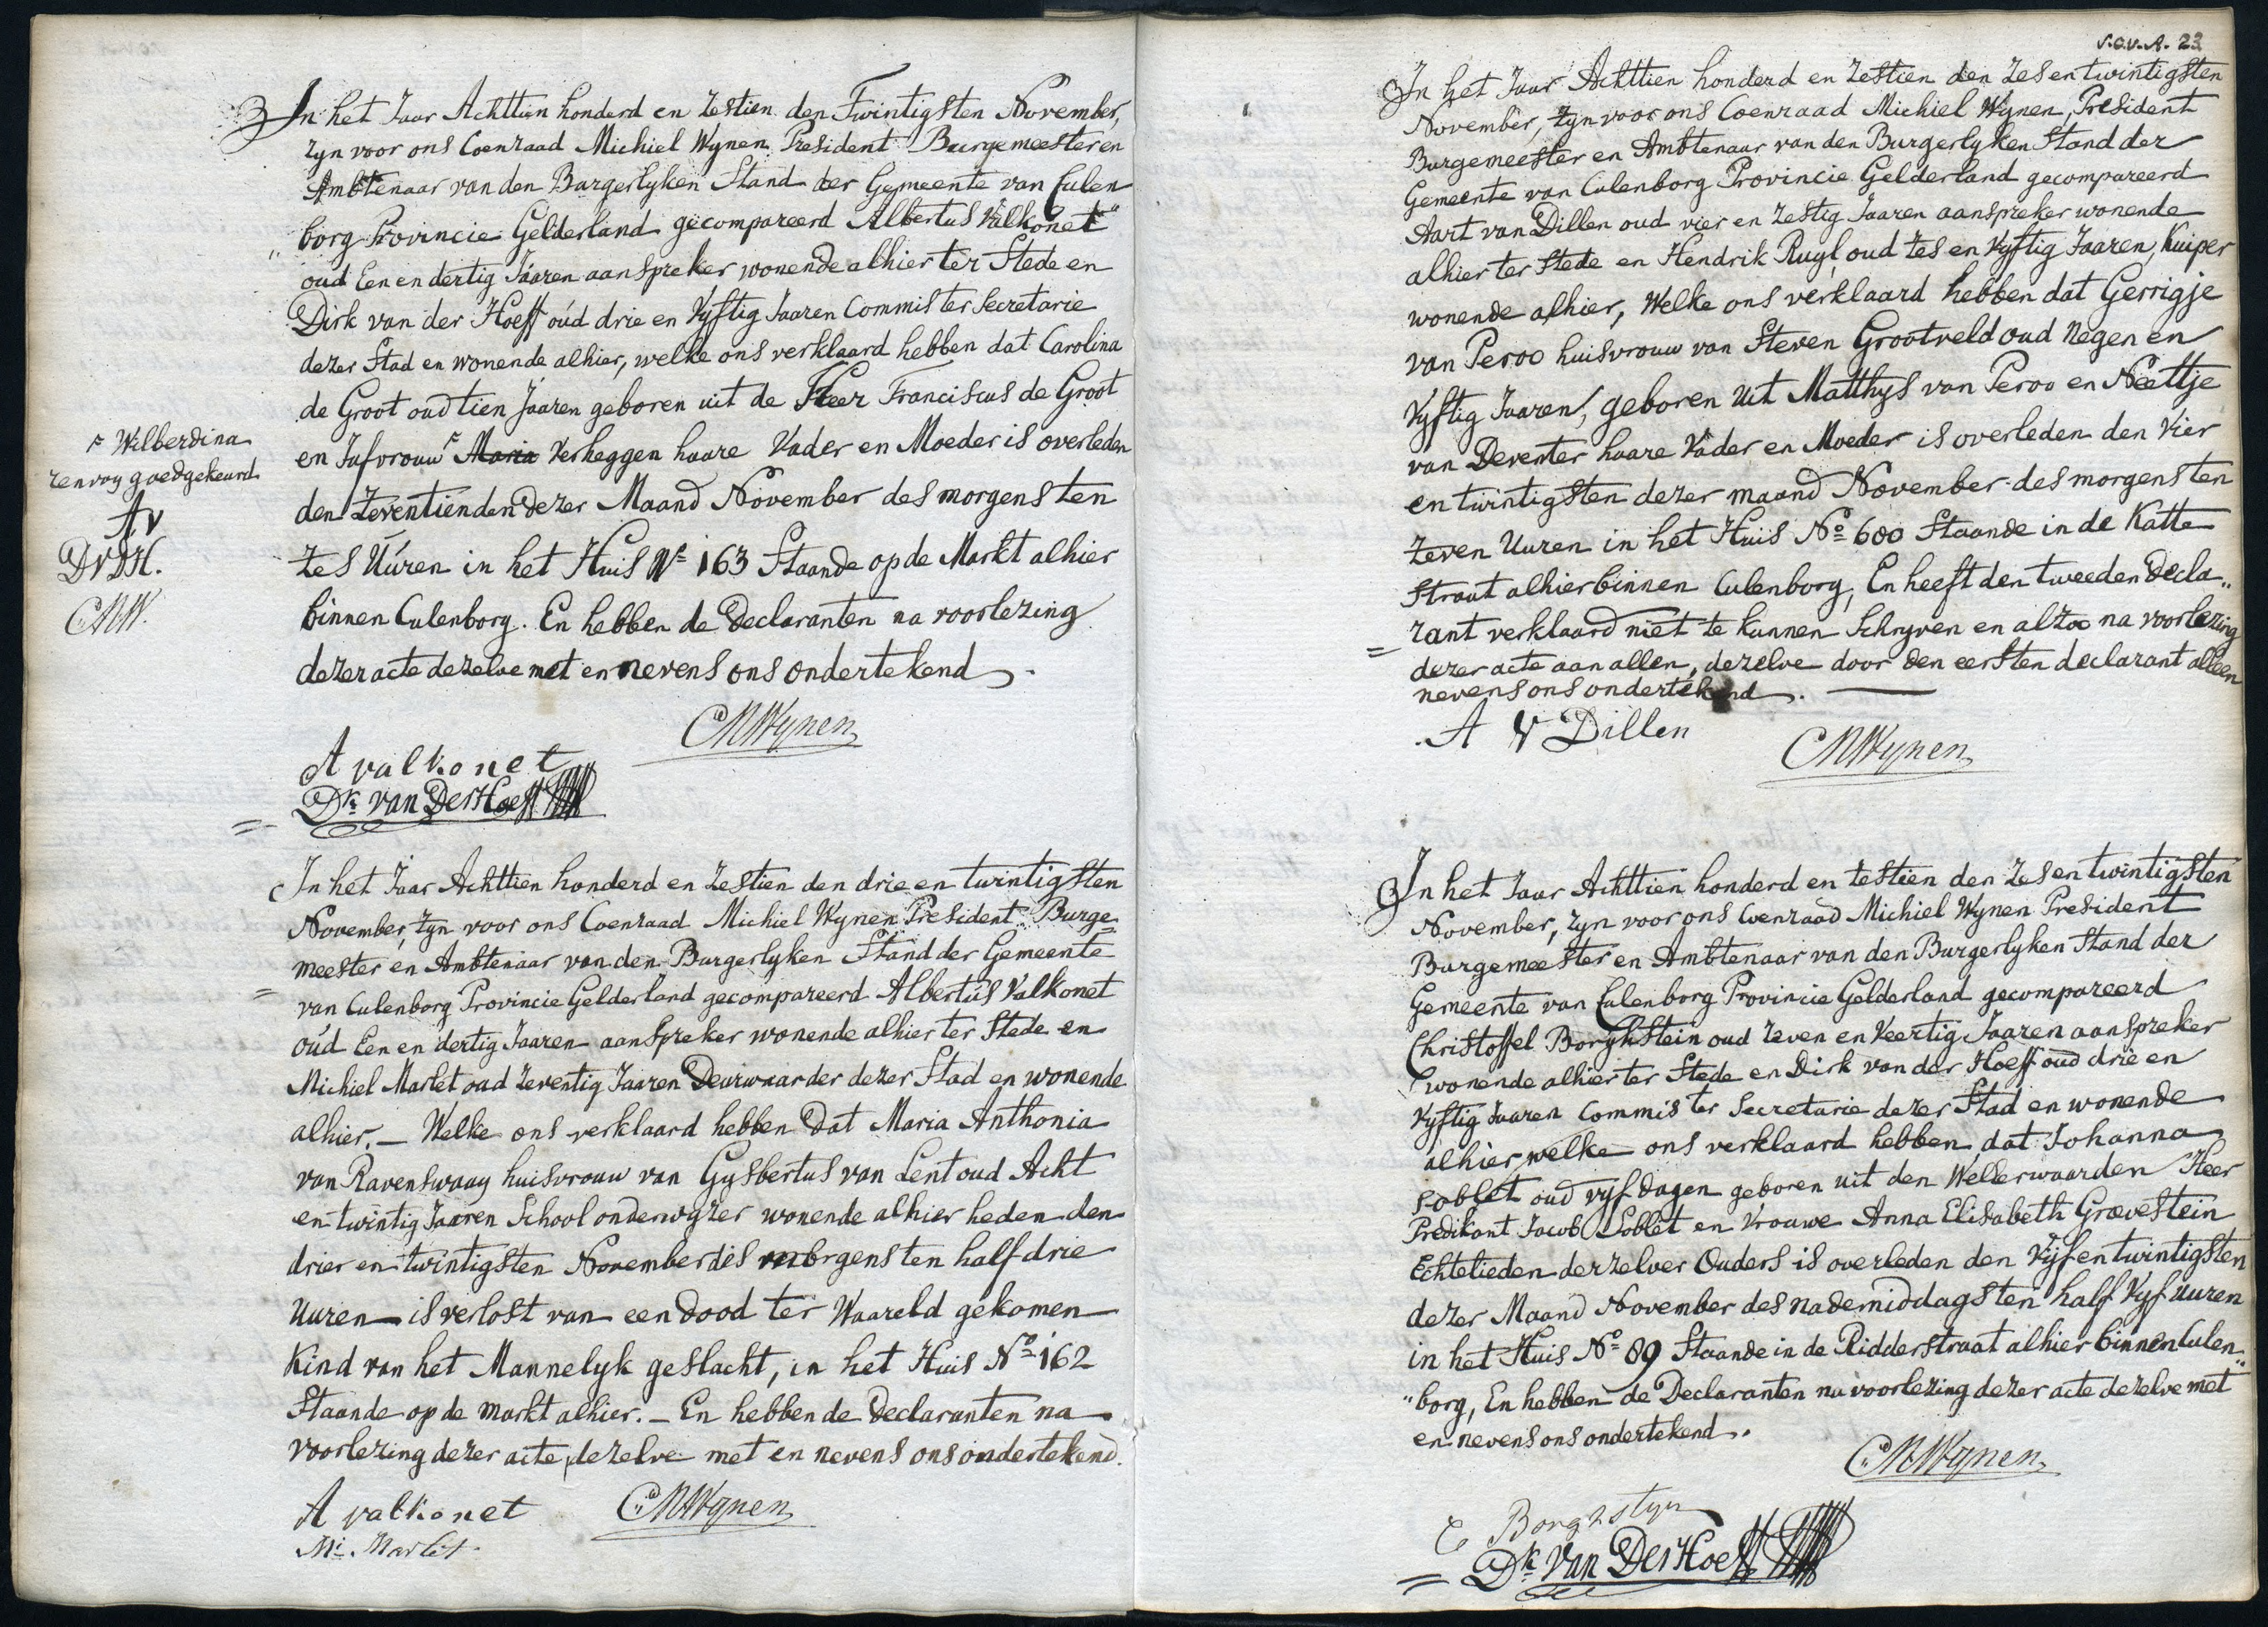 In het Jaar Achttien honderd en zestien den Twintigsten November,
zyn voor ons Coenraad Michiel Wynen President Burgemeester en
Ambtenaar van den Burgerlyken Stand der Gemeente van Culen
borg Provincie Gelderland gecompareerd Albertus Valkonet
oud Een en dertig Jaaren aanspreker wonende alhier ter Stede en
Dirk van der Hoeff oud drie en Vyftig Jaaren Commis ter Secretarie
dezer Stad en wonende alhier, welke ons verklaard hebben dat Carolina
de Groot oud tien Jaaren geboren uit de Heer Franciscus de Groot
en Jufvrouw ┌ Maria Verheggen haare Vader en Moeder is overleden
den Zeventienden dezer Maand November des morgens ten
zes Uuren in het Huis No 163 Staande op de Markt alhier
binnen Culenborg. En hebben de Declaranten na voorlezing
dezer acte dezelve met en nevens ons ondertekend
┌ Wilberdina
renvoy goedgekeurd
AV
DVDH.
CMW.
CMWynen
A valkonet
Dk van Der Hoeff
In het Jaar Achttien honderd en zestien den drie en twintigsten
November, zyn voor ons Coenraad Michiel Wynen President Burge=
meester en Ambtenaar van den Burgerlyken Stand der Gemeente
= van Culenborg Provincie Gelderland gecompareerd Albertus Valkonet
oud Een en dertig Jaaren aanspreker wonende alhier ter Stede en
Michiel Marlet oud Zeventig Jaaren Deurwaarder dezer Stad en wonende
alhier. — Welke ons verklaard hebben dat Maria Anthonia
van Ravenswaay huisvrouw van Gysbertus van Lent oud Acht
en twintig Jaaren School onderwyzer wonende alhier heden den
drier en twintigsten November des morgens ten half drie
Uuren — is verlost van een dood ter Waareld gekomen
Kind van het Mannelyk geslacht, in het Huis No 162
Staande op de Markt alhier. — En hebben de Declaranten na
voorlezing dezer acte, dezelve met en nevens ons ondertekend.
A valkonet CMWynen
Mi. Marlet
S.O.V.A. 23
In het Jaar Achttien honderd en zestien den zes en twintigsten
November, zyn voor ons Coenraad Michiel Wynen, President
Burgemeester en Ambtenaar van den Burgerlyken Stand der
Gemeente van Culenborg Provincie Gelderland gecompareerd
Aart van Dillen oud vier en zestig Jaaren aanspreker wonende
alhier ter Stede en Hendrik Ruyl oud zes en Vyftig Jaaren, Kuiper
wonende alhier, Welke ons verklaard hebben dat Gerrigje
van Peroo huisvrouw van Steven Grootveld oud Negen en
Vyftig Jaaren, geboren uit Matthys van Peroo en Neeltje
van Deventer haare Vader en Moeder is overleden den Vier
en twintigsten dezer maand November des morgens ten
zeven Uuren in het Huis No 600 Staande in de Katte
Straat alhier binnen Culenborg, En heeft den tweeden Decla„
= rant verklaard niet te kunnen Schryven en alzoo na voorlezing
dezer acte aan allen, dezelve door den eersten declarant alleen
nevens ons ondertekend. —
A V Dillen
CMWynen
In het Jaar Achttien honderd en zestien den zes en twintigsten
November, zyn voor ons Coenraad Michiel Wynen President
Burgemeester en Ambtenaar van den Burgerlyken Stand der
Gemeente van Culenborg Provincie Gelderland gecompareerd
Christoffel Borghstein oud zeven en Veertig Jaaren aanspreker
wonende alhier ter Stede en Dirk van der Hoeff oud drie en
Vyftig Jaaren Commis ter Secretarie dezer Stad en wonende
alhier welke ons verklaard hebben dat Johanna
Loblet oud vyf dagen geboren uit den Wellerwaarden Heer
Predikant Jacob Loblet en Vrouwe Anna Elisabeth Græevestein
Echtelieden derzelver Ouders is overleden den Vyf en twintigsten
dezer Maand November des nademiddags ten half Vyf Uuren
in het Huis No 89 Staande in de Ridderstraat alhier binnen Culen„
„borg, En hebben de Declaranten na voorlezing dezer acte dezelve met
en nevens ons ondertekend.
CMWynen
C Borghstyn
Dk van Der Hoeff